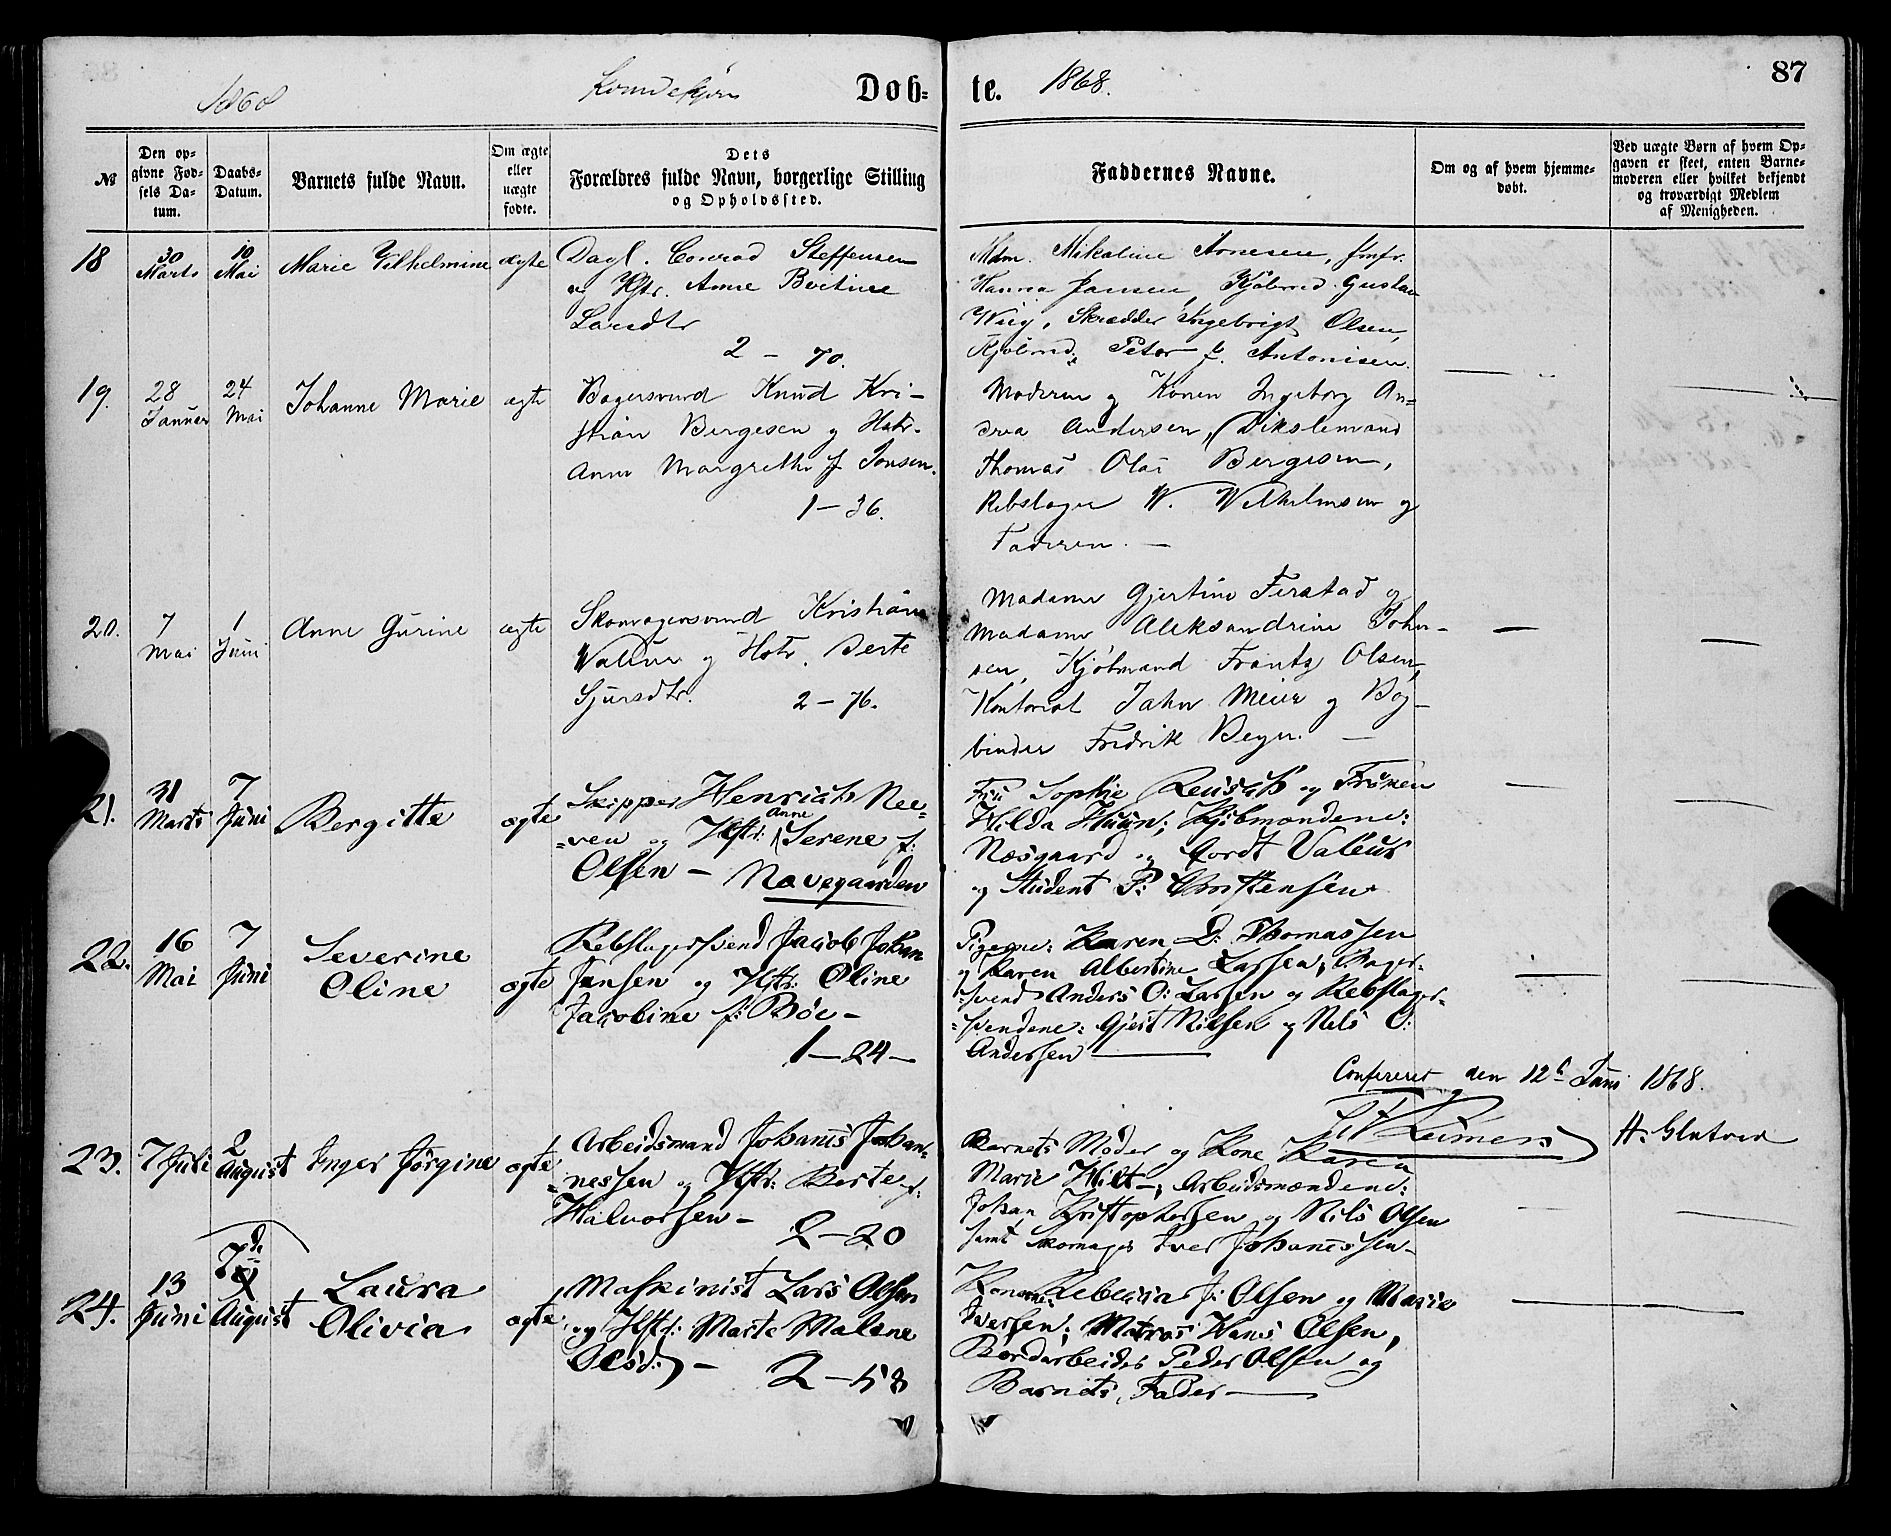 1868 Kvindekjøn Døb= te. 1868. 87
№
Den op-
givne Fød-
sels Da-
tum.
Daabs-
Datum.
Barnets fulde Navn.
Om ægte
eller
uægte
fødte.
Dets
Forældres fulde Navn, borgerlige Stilling
og Opholdssted.
Faddernes Navne.
Om og af hvem hjemme-
døbt.
Ved uægte Børn af hvem Op-
gaven er skeet, enten Barne-
moderen eller hvilket bekjendt
og troværdigt Medlem
af Menigheden.
18 30 Marts 10 Mai Marie Vilhelmine ægte
Dagl. Conrad Steffensen
og Hstr. Anne Bertine
Larsdtr
2 - 70.
Mdm. Mikaline Arnesen, Jmfr.
Hanna Jansen, Kjøbmd. Gustav
Wiig, Skrædder Ingebrigt Olsen,
Kjøbmd. Peter J. Antonisen.
19. 28 Januar 24 Mai Johanne Marie ægte
Bagersvend Knud Kri-
stian Bergesen og Hstr.
Anne Margrethe f Jonsen.
1 - 36.
Moderen og Konen Ingeborg An=
drea Andersen,
Thomas Olai Bergesen,
Rebslager W. Wilhelmsen og
Faderen. —
20. 7 Mai 1 Juni Anne Gurine ægte
Skomagersvend Kristian
og Hstr. Berte
Sjursdtr. 2 - 76.
Madame Gjertine Ferstad og
Madame Aleksandrine John-
sen, Kjøbmand Frantz Olsen,
Kontorist Jahn Meier og Bog-
binder Fredrik Beyer. —
21. 31 Marts 7 Juni Bergitte ægte
Skipper Henrich Nee-
=ven og Hstr: Anne Serene f:
Olsen - Navegaarden
Fru Sophie Reusch og Frøken
Hilda Huun; Kjøbmændene:
Næsgaard og Cordt Valeur
og Student P: Christensen
22. 16 Mai 7 Juni Severine Oline ægte
Rebslagersvend Jacob Johan
Jansen og Hstr: Oline
Jacobine f: Böe -
1 - 24 -
Pigerne: Karen D: Thomassen
og Karen Albertine Larsen; Bager-
svend Anders O: Larsen og Rebslager-
=svendene: Gjert Nilsen og Nils O:
Andersen
Confereret den 12te Juni 1868.
Reimers
23. 7 Juli 2 August Inger Jørgine ægte
Arbeidsmand Johanes Johan-
=nessen og Hstr: Berte f:
Halvorsen -
2 - 20
Barnets Moder og Kone Karen
Marie Hilt -; Arbeidsmændene:
Johan Kristophersen og Nils Olsen
samt Skomager Iver Johanessen -
24. 13 Juni 7de August Laura Olivia ægte
Maskinist Lars Olsen
og Hstr: Marte Malene
Olsd: -
2 - 58
Konerne: Rebecca f: Olsen og Marie
Iversen; Matros Hans Olsen,
Bordarbeider Peder Olsen og
Barnets Fader